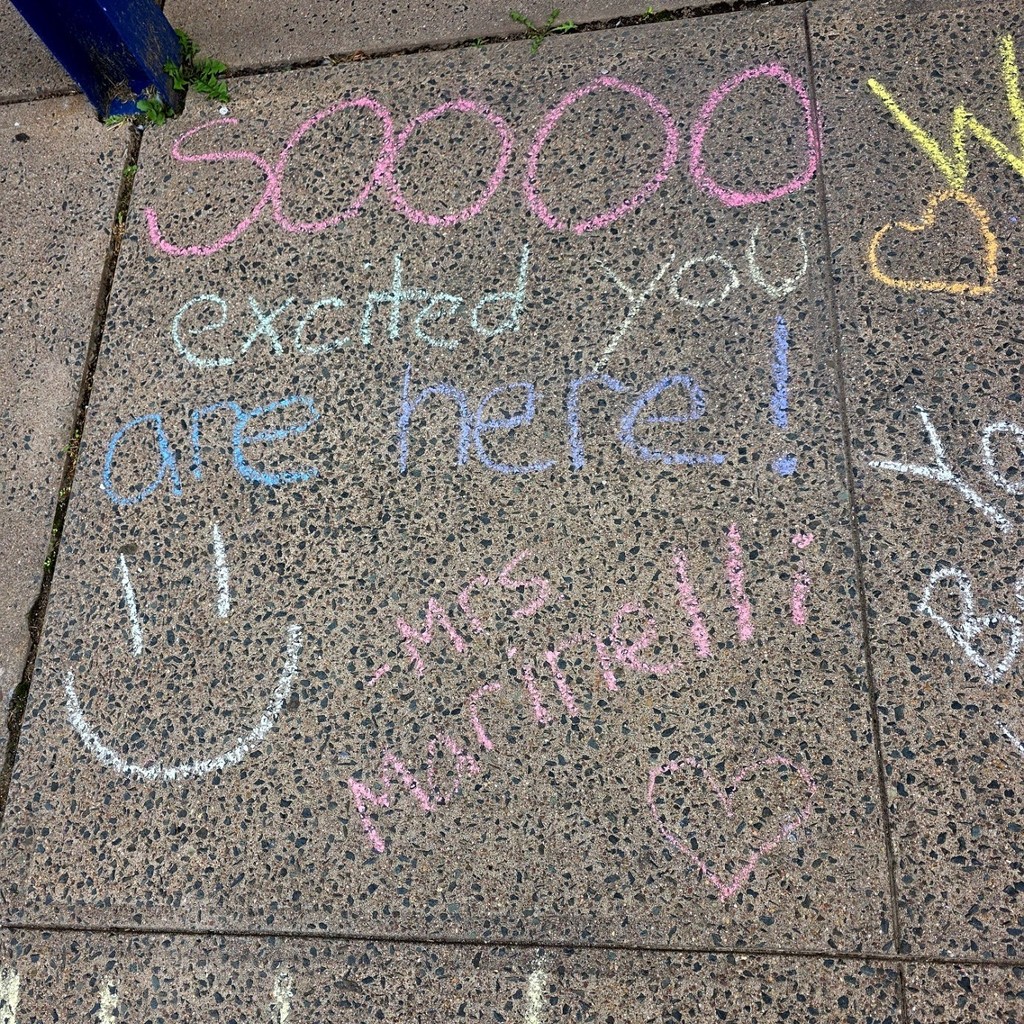 SOOOO
excited you
are here!
-Mrs
Marinelli